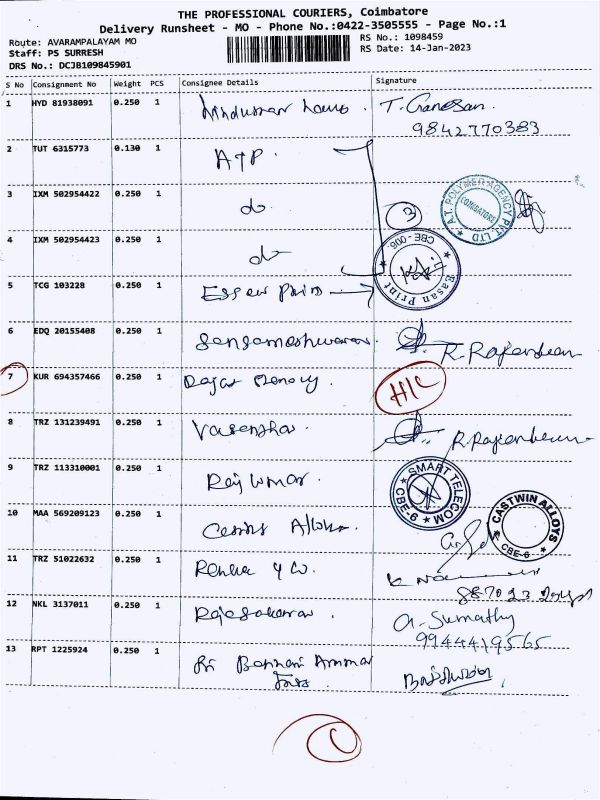 THE PROFESSIONAL COURIERS, Coimbatore
Delivery Runsheet - MO - Phone No.:0422-3505555 - Page No.:1
Route: AVARAMPALAYAM MO RS No.: 1098459
Staff: PS SURRESH RS Date: 14-Jan-2023
DRS No.: DCJB109845901
S No Consignment No Weight PCS Consignee Details Signature
1 HYD 81938091 0.250 1 T. Ganesan
9842770383
2 TUT 6315773 0.130 1 ATP.
3 IXM 502954422 0.250 1 do
A.T. POLYMER AGENCY PVT. LTD COIMBATORE
3
4 IXM 502954423 0.250 1 do
Easan Print CBE-006.
5 TCG 103228 0.250 1
6 EDQ 20155408 0.250 1 Sangameshwaran. R. Rajendran
7 KUR 694357466 0.250 1 H/C
8 TRZ 131239491 0.250 1 R. Rajendran
9 TRZ 113310001 0.250 1 Raj Kumar.
SMART TELECOM CBE-6
10 MAA 569209123 0.250 1
CASTWIN ALLOYS CBE-6
11 TRZ 51022632 0.250 1
12 NKL 3137011 0.250 1 Rajasekaran. a. Sumathy
9944419565
13 RPT 1225924 0.250 1 Sri Bannari Amman